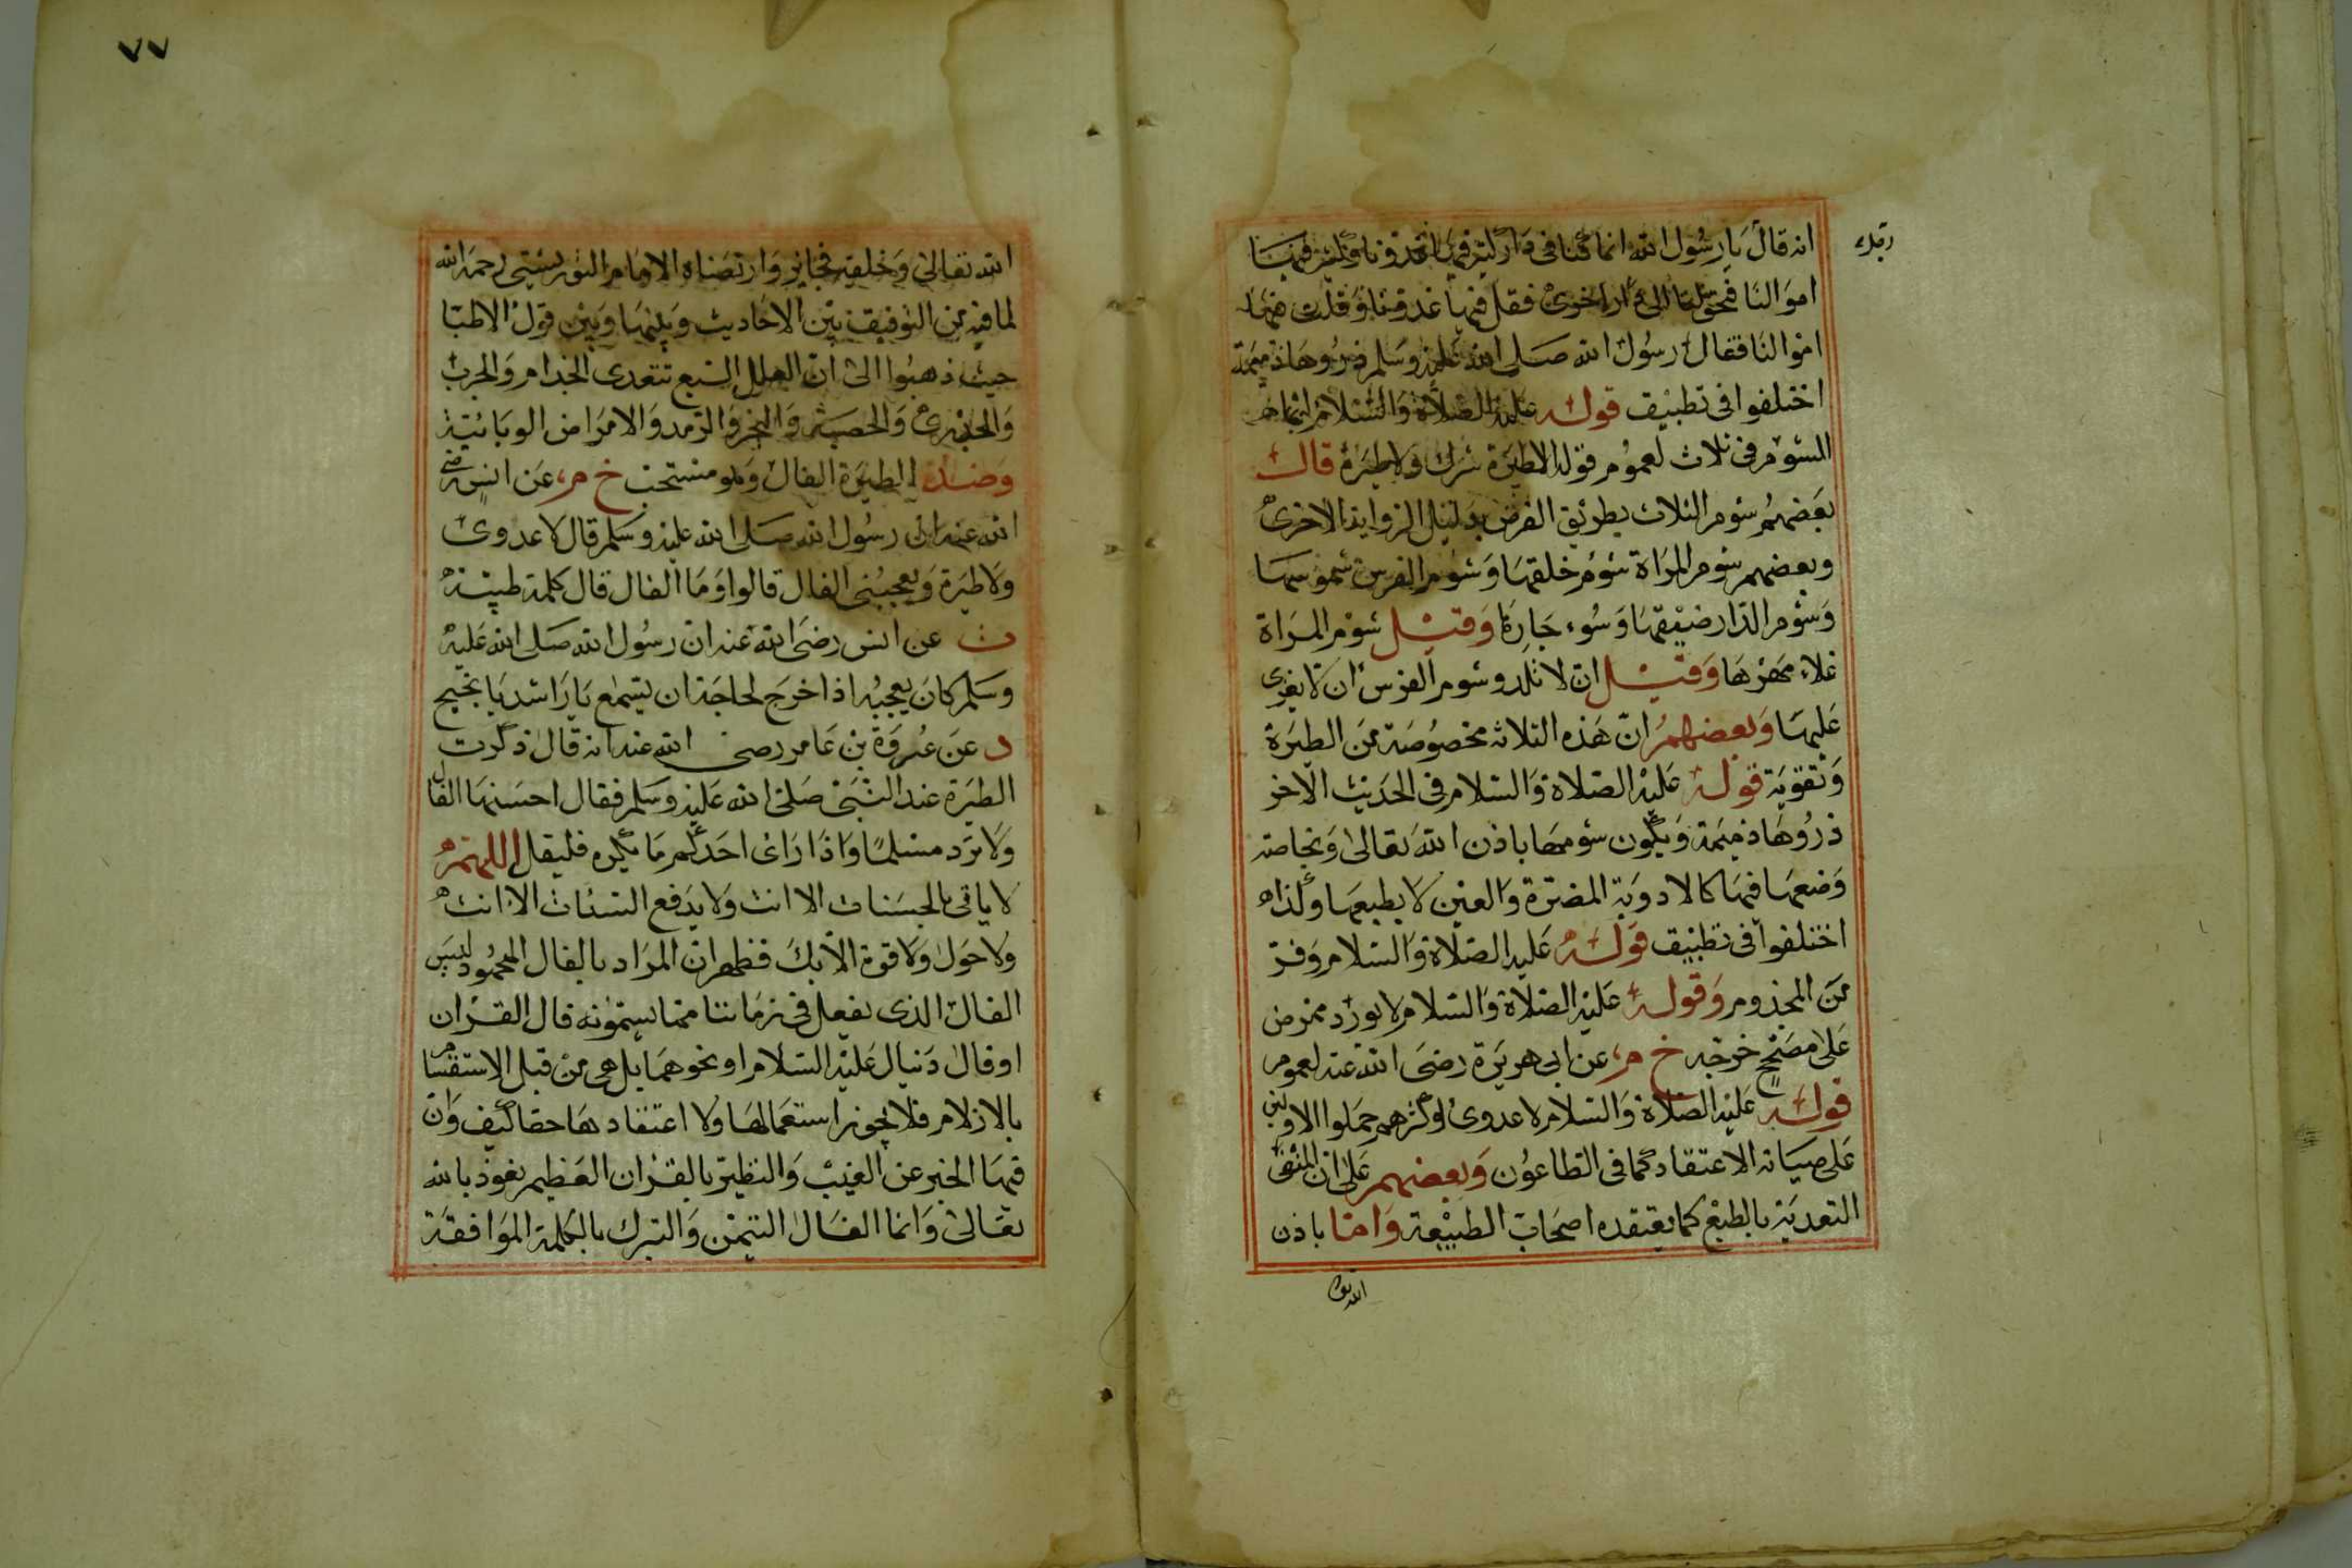 انه قال يا رسول الله انما كنا في دار كثر فيها عددنا وكثر فيها
اموالنا فتحولنا الى دار اخرى فقل فيها عددنا وقلت فيها
اموالنا فقال رسول الله صلى الله عليه وسلم ذروها ذميمة
اختلفوا في تطبيق قوله عليه الصلاة والسلام انما
الشوم في ثلاث لعموم قوله الطيرة شرك ولا طيرة قال
بعضهم شوم الثلاث بطريق الفرض بدليل الرواية الاخرى
وبعضهم شوم المراة سوء خلقها وشوم الفرس شموسها
وشوم الدار ضيقها وسوء جارها وقيل شوم المراة
غلاء مهرها وقيل ان لا تلد وشوم الفرس ان لا يغزى
عليها وبعضهم ان هذه الثلاثة مخصوصة من الطيرة
وتقوية قوله عليه الصلاة والسلام في الحديث الاخر
ذروها ذميمة ويكون شومها باذن الله تعالى وبخاصة
وضعها فيها كالادوية المضرة والعين لا بطبعها ولذا
اختلفوا في تطبيق قوله عليه الصلاة والسلام وفر
من المجذوم وقوله عليه الصلاة والسلام لا يورد ممرض
على مصح خرجه خ م عن ابي هريرة رضى الله عنه لعموم
قوله عليه الصلاة والسلام لا عدوى اوكثرهم حملوا الاولين
على صيانة الاعتقاد كما في الطاعون وبعضهم على ان المنفى
التعدية بالطبع كما يعتقده اصحاب الطبيعة واما باذن
الله تعا
٧٧
الله تعالى وخلقه فجايز وارتضاه الامام التوربشتى رحمه الله
لما فيه من التوفيق بين الاحاديث وبينها وبين قول الاطبا
حيث ذهبوا الى ان العلل السبع تتعدى الجذام والجرب
والجدرى والحصبة والبخر والرمد والامراض الوبائية
وضد الطيرة الفال وهو مستحب خ م عن انس رضى
الله عنه ان رسول الله صلى الله عليه وسلم قال لا عدوى
ولا طيرة ويعجبنى الفال قالوا وما الفال قال كلمة طيبة
ت عن انس رضى الله عنه ان رسول الله صلى الله عليه
وسلم كان يعجبه اذا خرج لحاجة ان يسمع يا راشد يا نجيح
د عن عروة بن عامر رضى الله عنه انه قال ذكرت
الطيرة عند النبى صلى الله عليه وسلم فقال احسنها الفال
ولا ترد مسلما واذا راى احدكم ما يكره فليقل اللهم
لا ياتى بالحسنات الا انت ولا يدفع السيئات الا انت
ولا حول ولا قوة الا بك فظهر ان المراد بالفال المحمود ليس
الفال الذى يفعل في زماننا مما يسمونه فال القران
او فال دنيال عليه السلام او نحوهما بل هى من قبل الاستقسام
بالازلام فلا يجوز استعمالها ولا اعتقادها حقا كيف وان
فيها الخبر عن الغيب والتطير بالقران العظيم نعوذ بالله
تعالى وانما الفال التيمن والتبرك بالكلمة الموافقة